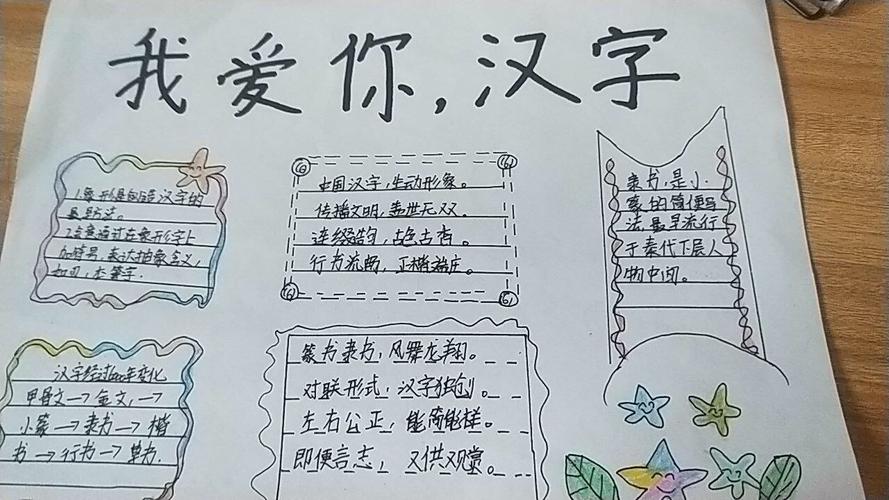 我爱你,汉字
1.象形是创造汉字的
基本方法。
2.会意通过在象形字上
加符号,表达抽象含义,
如刃,本等字.
中国汉字,生动形象。
传播文明,盖世无双。
连缀韵,古色古香。
行书流畅,正楷端庄。
隶书,是小
篆的简便写
法最早流行
于秦代下层人
物中间。
汉字经过6000年变化
甲骨文→金文,→
小篆→隶书→楷
书→行书→草书.
篆书隶书,风舞龙翔。
对联形式,汉字独创。
左右公正,能简能样。
即便言志,又供观赏。